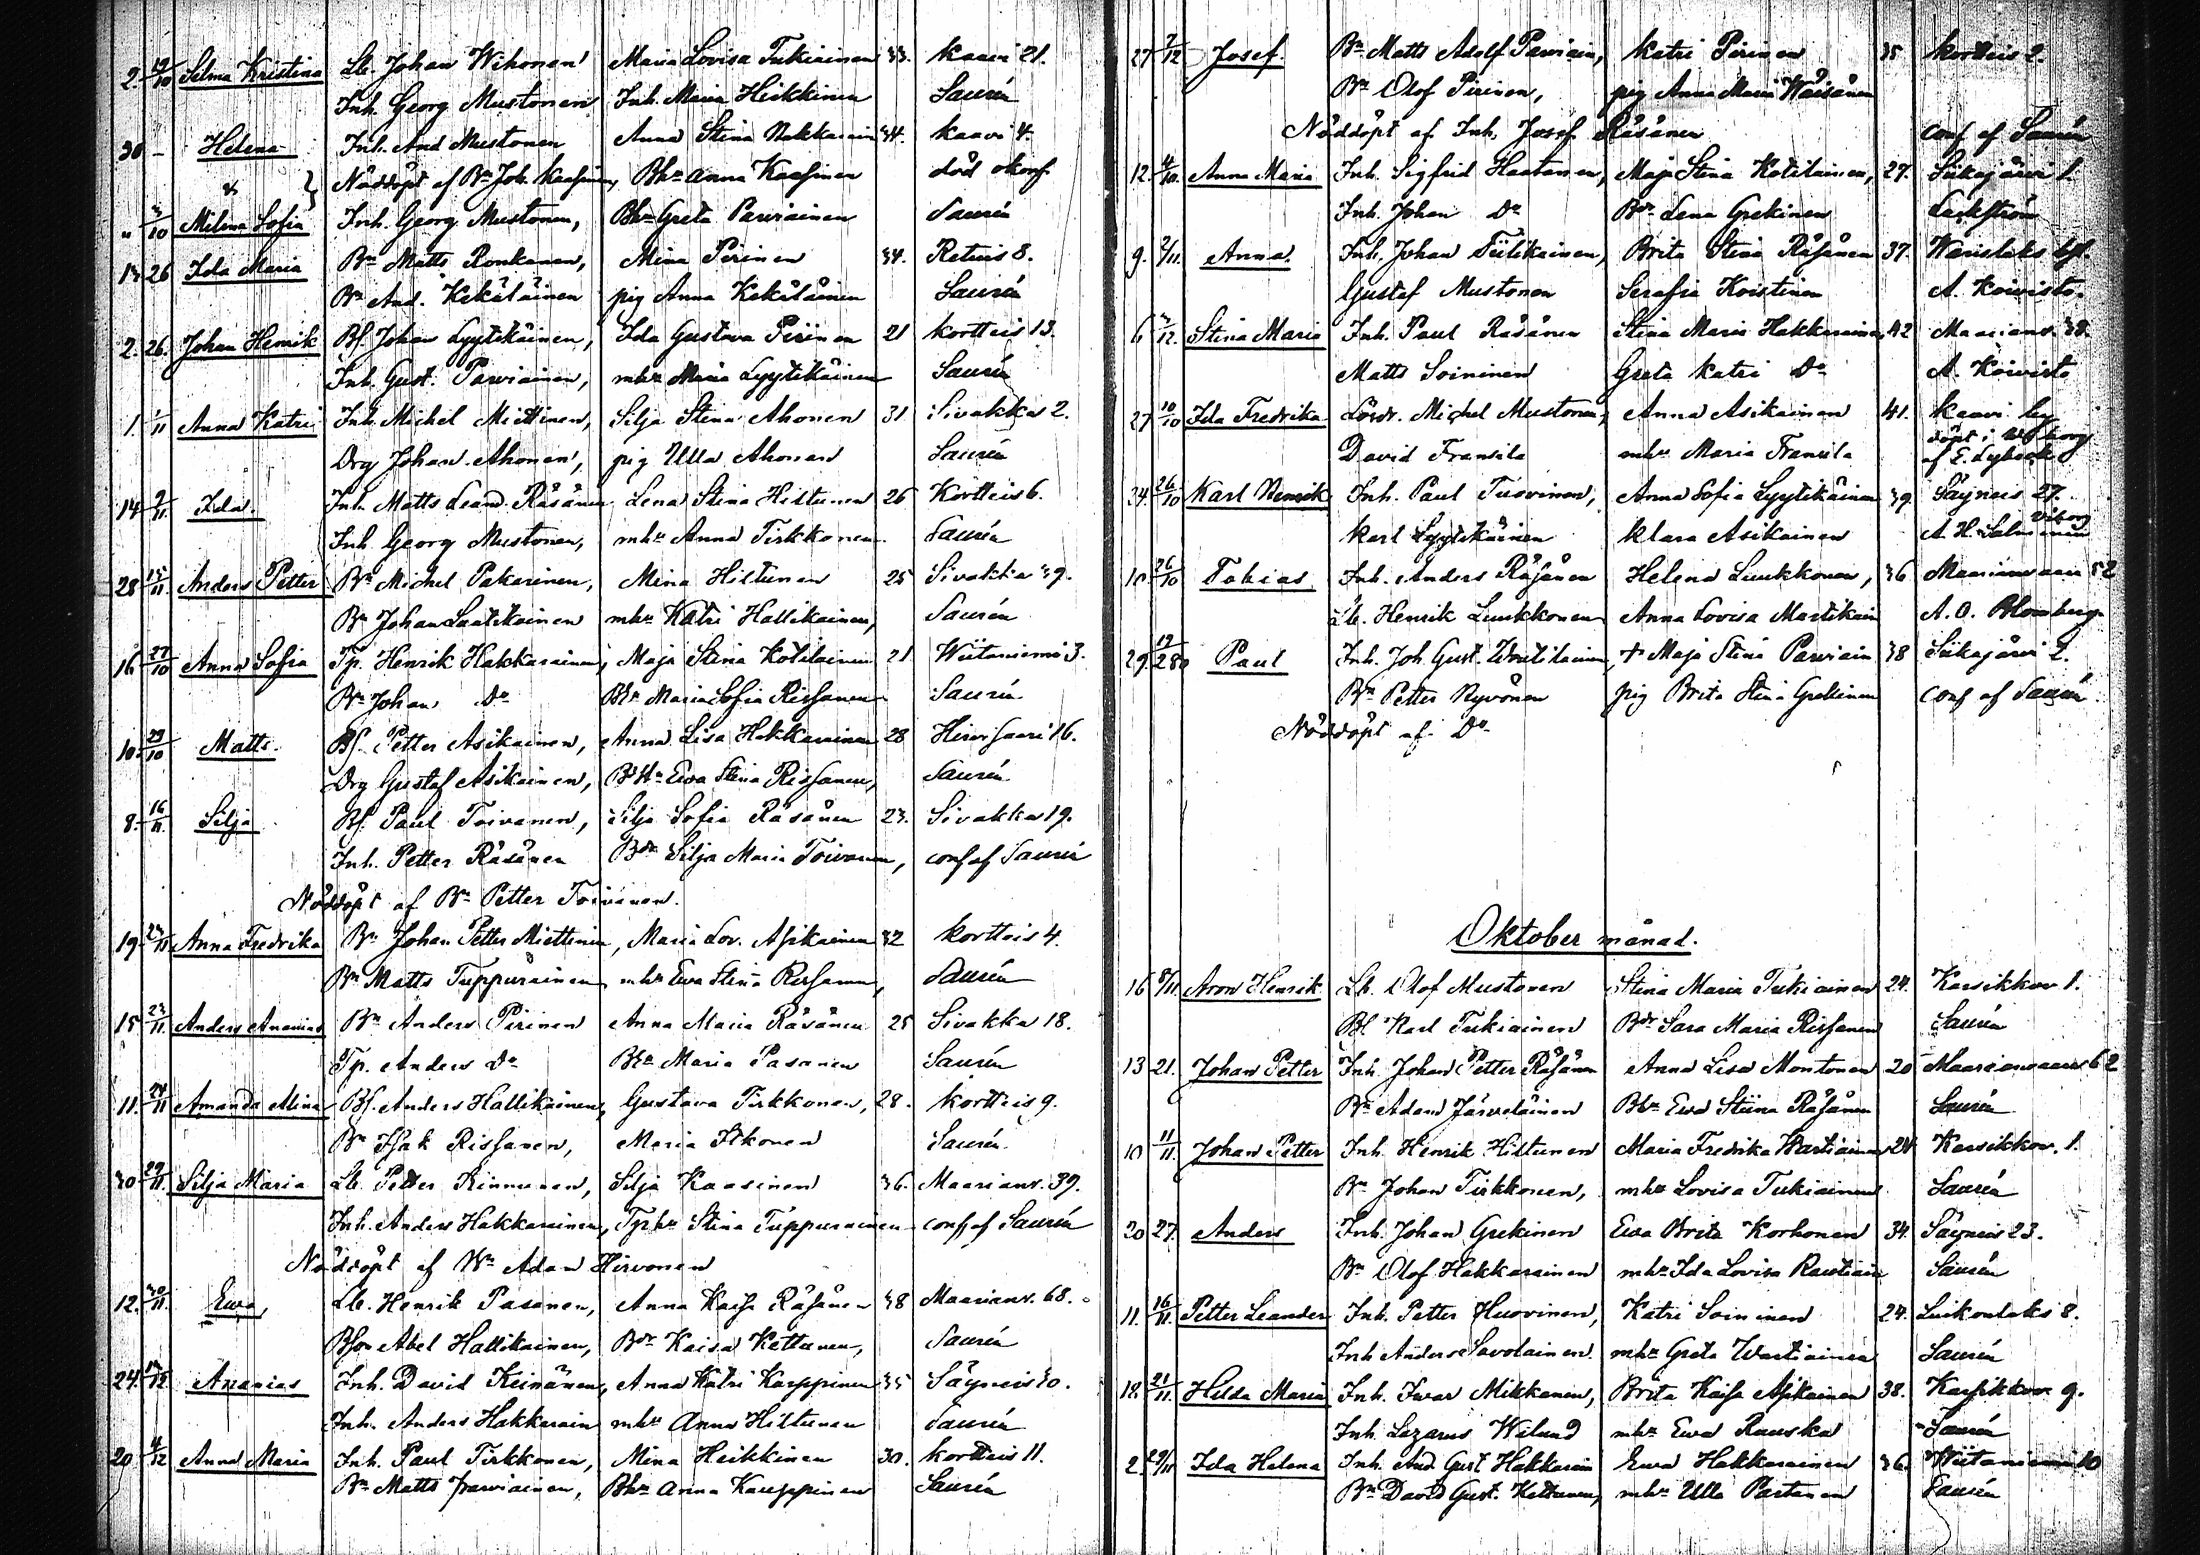 2. 19/10 Selma Kristina Lb. Johan Wihonen Maria Lovisa Tukiainen 33. Kaavi 21.
Inh. Georg Mustonen Inh. Maria Heikkinen Saurén
30 - Helena Inh. And Mustonen Anna Stina Hakkarain 34. Kaavi 4.
& Nöddöpt af Bn Joh. Kaasinen, Bhr Anna Kaasinen död okonf.
" 3/10 Milma Sofia Inh. Georg Mustonen, Bhr Greta Parviainen Saurén
13 26 Ida Maria Bn Matts Ronkanen, Mina Pirinen 34. Retuis 8.
Bn And. Kekäläinen pig Anna Kekäläinen Saurén
2. 26. Johan Henrik Bf. Johan Lyytikäinen, Ida Gustava Pirinen 21 Kortteis 13.
Inh. Gust. Parviainen, mhr Maria Lyytikäinen Saurén
1. 1/11 Anna Katri Inh. Michel Miettinen, Silja Stina Ahonen 31 Sivakka 2.
Drg Johan Ahonen, pig Ulla Ahonen Saurén
14 9/11. Ida. Inh. Matts Leand. Räsänen Lena Stina Hiltunen 26 Kortteis 6.
Inh. Georg Mustonen, mhr Anna Tirkkonen Saurén
28 15/11. Anders Petter Bn Michel Pakarinen, Mina Hiltunen 25 Sivakka 39.
Bn Johan Laatikainen mhr Katri Hallikainen, Saurén
16 27/10 Anna Sofia Tp. Henrik Hakkarainen, Maja Stina Kotilainen 21 Wiitaniemi 3.
Bn Johan Do Bhr Maria Sofia Rissanen Saurén
10. 29/10 Matts. Bf. Petter Asikainen, Anna Lisa Hakkarainen 28 Hirvisaari 16.
Drg Gustaf Asikainen, Bhr Ewa Stina Rissanen, Saurén
8. 16/11. Silja Bf. Paul Toivanen, Silja Sofia Räsänen 23. Sivakka 19.
Inh. Petter Räsänen Bdr Silja Maria Toivanen, conf af Saurén
Nöddöpt af Bn Petter Toivanen.
19. Anna Fredrika Bn Johan Petter Miettinen, Maria Lov. Asikainen 32 Kortteis 4.
Bn Matts Tuppurainen mhr Ewa Stina Rissanen, Saurén
15 23/11. Anders Ananias Bn Anders Pirinen Anna Maria Räsänen 25 Sivakka 18.
Tp. Anders Do Bhr Maria Pasanen Saurén
11. 24/11 Amanda Mina Bf. Anders Hallikainen, Gustava Tirkkonen, 28. Kortteis 9.
Bn Isak Rissanen, Maria Itkonen Saurén.
30 29/11. Silja Maria Lb. Petter Kinnunen, Silja Kaasinen 36. Maarianv. 39.
Inh. Anders Hakkarainen, Tprhr Stina Tuppurainen conf af Saurén
Nöddöpt af Wn Adam Hirvonen
12. 30/11. Ewa, Lb. Henrik Pasanen, Anna Kaisa Räsänen 38 Maarianv. 68.
Bson Abel Hallikainen, Bdr Kaisa Kettunen, Saurén
24. Ananias Inh. David Keinänen, Anna Katri Karppinen 35 Säyneis 30.
Inh. Anders Hakkarain mhr Anna Hiltunen Saurén
20 4/12 Anna Maria Inh. Paul Tirkkonen, Mina Heikkinen 30. Kortteis 11.
Bn Matts Parviainen, Bhr Anna Karppinen Saurén
27 7/12 Josef. Bn Matts Adolf Parviain, Katri Pirinen 35 Kortteis 2.
Bn Olof Pirinen, pig Anna Maria Wäisänen
Nöddöpt af Inh. Josef Räsänen conf af Saurén
12. 4/10. Anna Maria Inh. Sigfrid Haatanen, Maja Stina Kotilainen, 27. Siikajärvi 1.
Inh. Johan Do Bdr Lena Grekinen Lackström
9. 2/11. Anna. Inh. Johan Tiilikainen, Brita Stina Räsänen 37. Waristaks
Gustaf Mustonen Serafia Koistinen A. Koivisto.
6 3/12. Stina Maria Inh. Paul Räsänen Stina Maria Hakkarainen 42 Maarianv. 38.
Matts Soininen Greta Katri Do A. Koivisto
27 10/10 Ida Fredrika Lösdr. Michel Mustonen, Anna Asikainen 41. Kaavi by
David Fransila mhr Maria Fransila döpt i Wiborg af E. Lybeck
24. 26/10 Karl Henrik Inh. Paul Tuovinen, Anna Sofia Lyytikäinen 39. Säyneis 27.
Karl Lyytikäinen Klara Asikainen A. H. Salminen Viborg
10 26/10 Tobias Inh. Anders Räsänen Helena Luukkonen, 36 Maarianvaara 52
Lb. Henrik Luukkonen Anna Lovisa Martikain A. O. Blomberg
29. Paul Inh. Joh. Gust. Woutilainen, + Maja Stina Parviain 38 Siikajärvi 2.
Bn Petter Ryvönen pig Brita Stina Grekinen conf af Saurén
Nöddöpt af Do
Oktober månad.
16 8/11. Aron Henrik Lb. Olof Mustonen Stina Maria Tukiainen 24. Karsikkov. 1.
Bf. Karl Tukiainen Bdr Sara Maria Rissanen Saurén
13 21. Johan Petter Inh. Johan Petter Räsänen Anna Lisa Montonen 20 Maarianvaara 62
Bn Adam Järveläinen Bhr Ewa Stiina Räsänen Saurén
10 11/11. Johan Petter Inh. Henrik Hiltunen Maria Fredrika Wartiainen 24 Karsikkov. 1.
Bn Johan Tirkkonen, mhr Lovisa Tukiainen Saurén
20 27. Anders Inh. Johan Grekinen Ewa Brita Korhonen 34. Säyneis 23.
Bn Olof Hakkarainen mhr Ida Lovisa Rautiain Saurén
11. 16/11. Petter Leander Inh. Petter Huovinen, Katri Soininen 24. Luikonlaks 8.
Inh Anders Savolainen. mhr Greta Wartiainen Saurén
18. 21/11. Hilda Maria Inh. Ivar Mikkanen, Brita Kaisa Asikainen 38. Karsikkov. 9.
Inh. Lazarus Wilund mhr Ewa Rauska Saurén
2. 29/11 Ida Helena Inh. And Gust Hakkarain Ewa Hakkarainen 36. Wiitaniemi 10
Bn David Gust. Kettunen, mhr Ulla Partanen Saurén